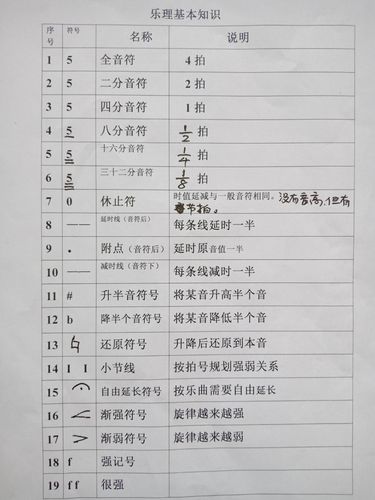 乐理基本知识
序号 符号 名称 说明
1 5 全音符 4 拍
2 5 二分音符 2 拍
3 5 四分音符 1 拍
4 5 八分音符 1/2 拍
5 5 十六分音符 1/4 拍
6 5 三十二分音符 1/8 拍
7 0 休止符 时值延减与一般音符相同。没有音高,但有
节拍。
8 —— 延时线(音符后) 每条线延时一半
9 · 附点(音符后) 延时原音值一半
10 —— 减时线(音符下) 每条线减时一半
11 # 升半音符号 将某音升高半个音
12 b 降半个音符号 将某音降低半个音
13 ♮ 还原符号 升降后还原到本音
14 | | 小节线 按拍号规划强弱关系
15 自由延长符号 按乐曲需要自由延长
16 < 渐强符号 旋律越来越强
17 > 渐弱符号 旋律越来越弱
18 f 强记号
19 f f 很强